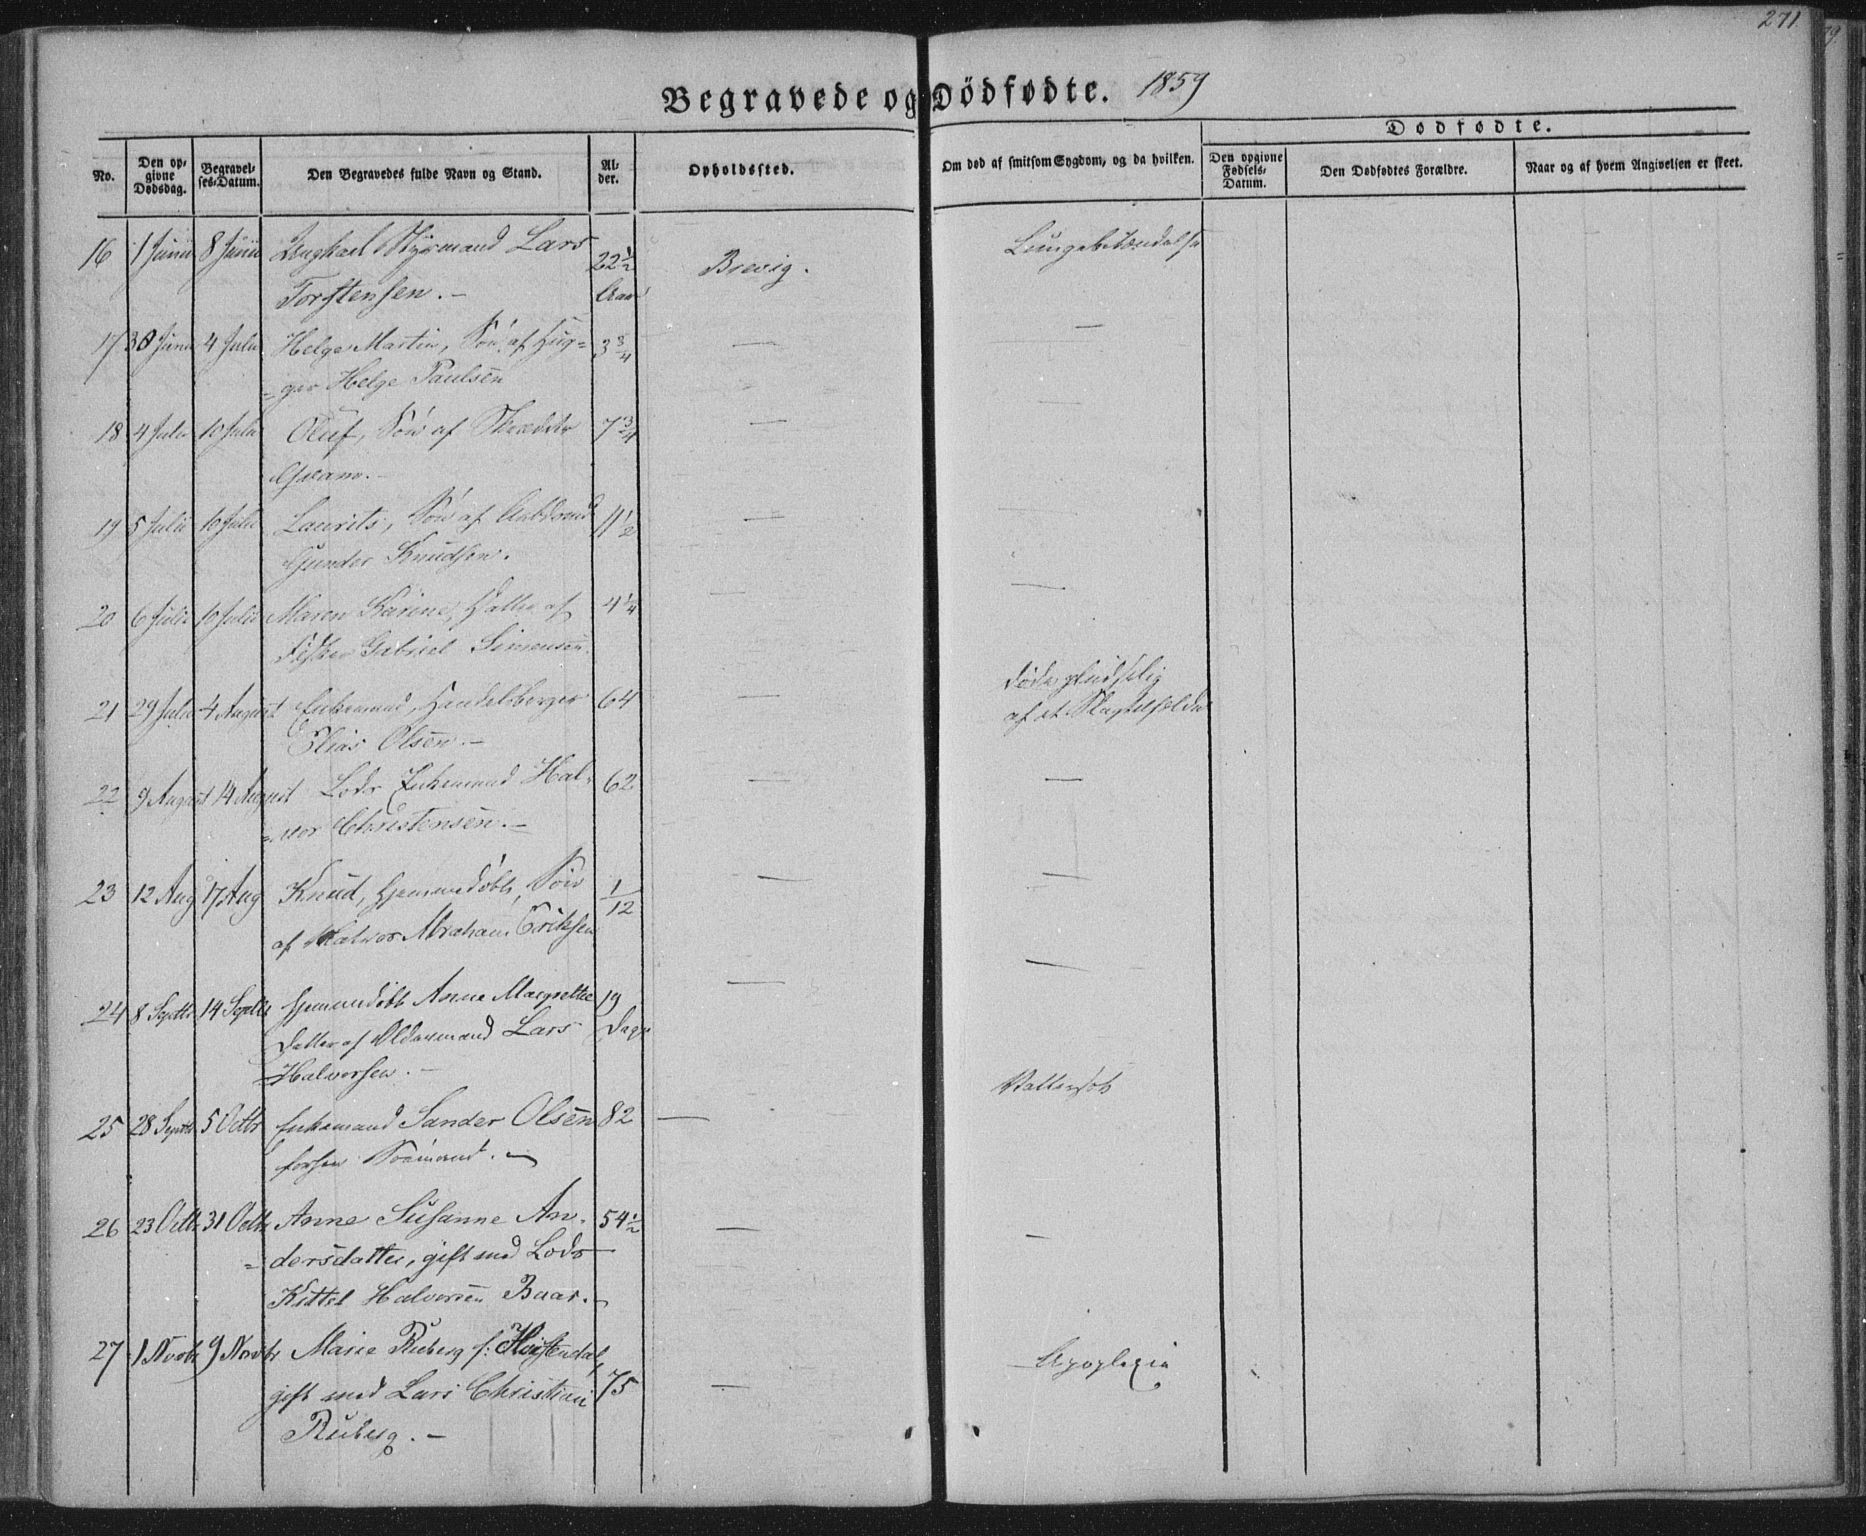 271.
Begravede og Dödfödte. 1859
Dødfødte.
No.
Den op-
givne
Dødsdag.
Begravel-
ses-Datum.
Den Begravedes fulde Navn og Stand.
Al-
der.
Opholdssted.
Om død af smitsom Sygdom, og da hvilken.
Den opgivne
Fødsels-
Datum.
Den Dødfødtes Forældre.
Naar og af hvem Angivelsen er skeet.
16 1 Junii 8 Junii Ungkarl Styrmand Lars 22 1/2 Brevig. Lungebetændelse
Torstensen. — Aar
17 30 Juni 4 Julii Helge Martin, Søn af Hug= 3 3/4 — —
= ger Helge Paulsen
18 4 Julii 10 Julii Oluf, Søn af Skrædder 7 3/4 —
Gram. —
19 5 Julii 10 Julii Laurits, Søn af 11 1/2 —
Gunder Knudsen.
20 6 Julii 10 Julii Maren Karine, Datter af 4 1/4 —
Fisker Gabriel Simensen.
21 29 Julii 4 August Enkemand, Handelsborger 64 — Døde pludselig
Elias Olsen. — af et Slagtilfælde
22 9 August 14 August Lods Enkemand Hal= 62 — —
= vor Christensen. —
23 12 Aug 17 Aug Knud, hjemmedøbt, Søn 1/12 — —
af Halvor Abraham Eriksen
24 8 Septbr 14 Septbr hjemmedøbt Anne Margrethe 19 — —
Datter af Oldermand Lars Dage
Halvorsen. —
25 28 Septbr 5 Octbr Enkemand Sander Olsen 82 — Vattersot
forhen Sømand. —
26 23 Octbr 31 Octbr Anne Susanne An= 54 1/2 — —
= dersdatter, gift med Lods
Kittel Halvorsen Baar. —
27 1 Novbr 9 Novbr Marie Ruberg f: Hvistendal, Apoplexia
gift med Lars Christian 75 —
Ruberg. —